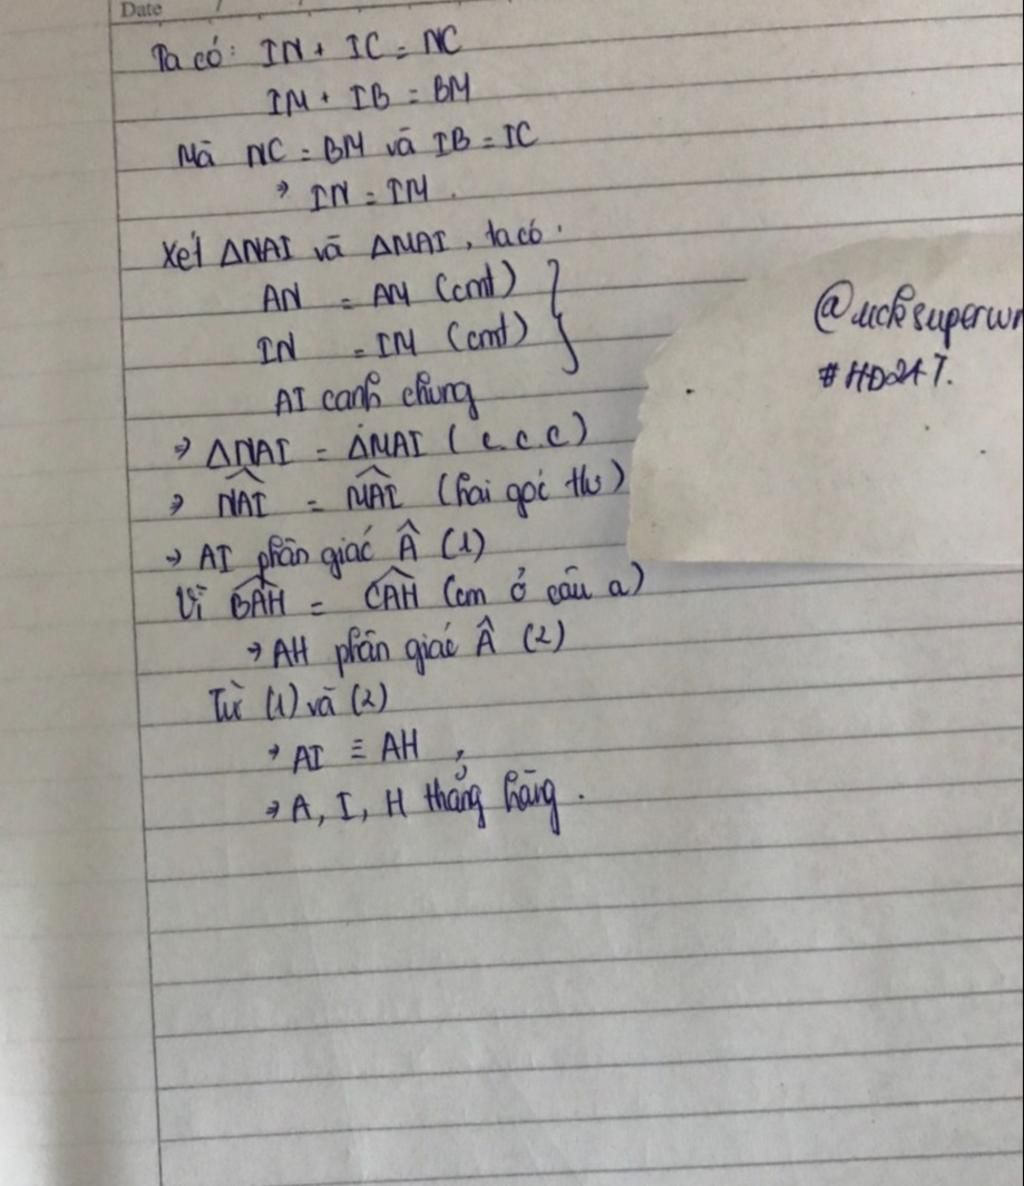 Date
Ta có: IN + IC = NC
IM + IB = BM
Mà NC = BM và IB = IC
→ IN = IM.
Xét ΔNAI và ΔMAI, ta có:
AN = AM (cmt)
IN = IM (cmt)
AI cạnh chung
→ ΔNAI = ΔMAI (c.c.c)
→ N̂AI = M̂AI (hai góc tư)
→ AI phân giác Â (1)
Vì B̂AH = ĈAH (cm ở câu a)
→ AH phân giác Â (2)
Từ (1) và (2)
→ AI ≡ AH,
→ A, I, H thẳng hàng.
#HD247.